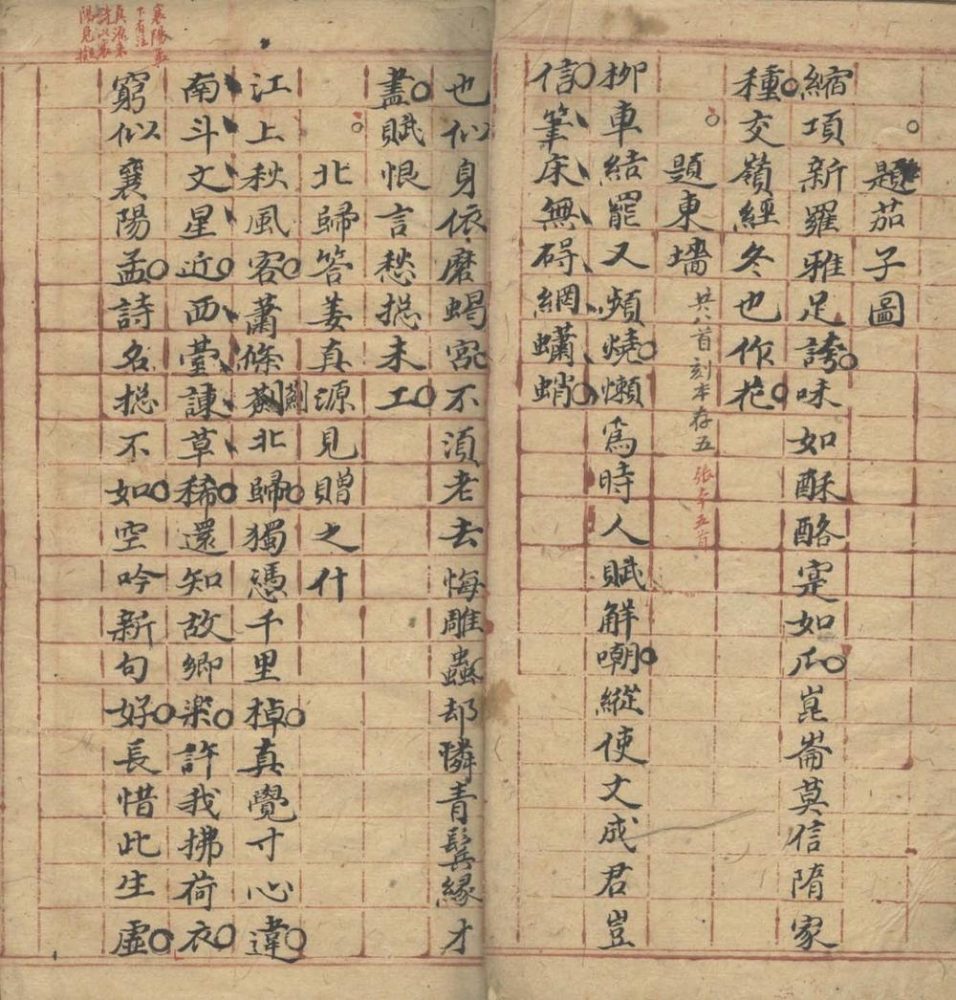 題茄子圖
縮項新羅雅足誇味如酥酪寔如瓜崑崙莫信隋家
種交嶺經冬也作花
題東墻 共八首刻本存五 張本五首
柳車結罷又頻燒懶為時人賦解嘲縱使文成君豈
信筆床無碍網蠨蛸
也似身依磨蝎宮不須老去悔雕蟲却憐青鬢緣才
盡賦恨言愁揔未工
北歸答姜真源見贈之什
江上秋風客蕭條薊北歸獨憑千里棹真覺寸心違
南斗文星近西臺諫草稀還知故鄉樂許我拂荷衣
窮似襄陽孟詩名揔不如空吟新句好長惜此生虛
襄陽孟
下有注
真源來
詩以襄
陽見擬